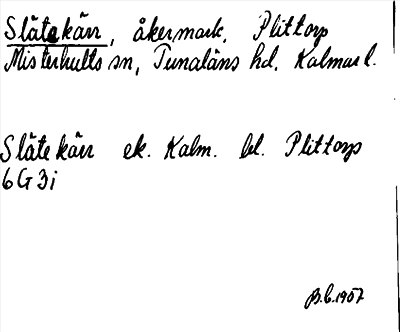 Slätekärr, åkermark, Plittorp
Misterhults sn, Tunaläns hd, Kalmar l.
Släte kärr ek. Kalm. bl. Plittorp
6G3i
B.C. 1957